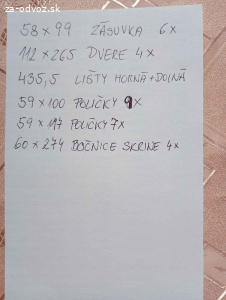 za-odvoz.sk
58 x 99 ZÁSUVKA 6x
112 x 265 DVERE 4x
435,5 LIŠTY HORNÁ + DOLNÁ
59 x 100 POLIČKY 9x
59 x 117 POLIČKY 7x
60 x 274 BOČNICE SKRINE 4x